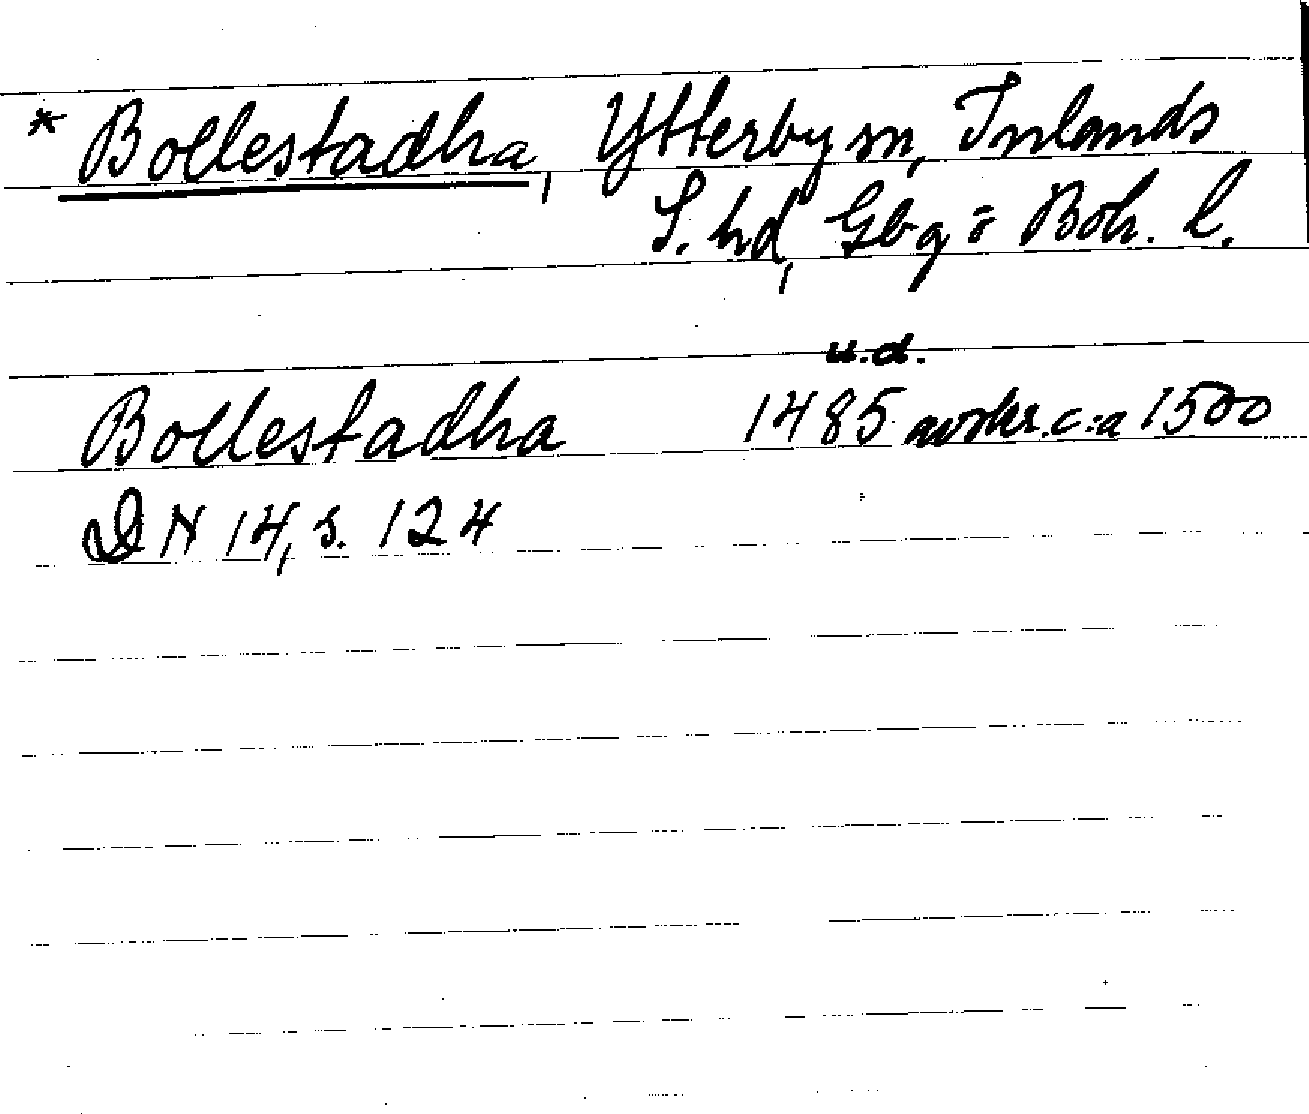 * Bollestadha, Ytterby sn, Inlands
S. hd, Gbg o Boh. l.
u.d.
Bollestadha 1485 avskr. c:a 1500
DN 14, s. 124